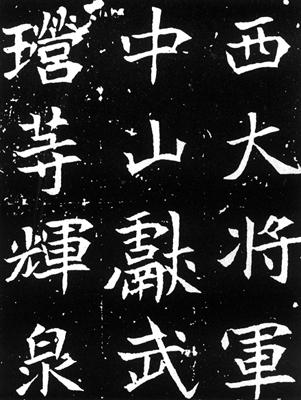 西大将軍
中山獻武
等輝泉